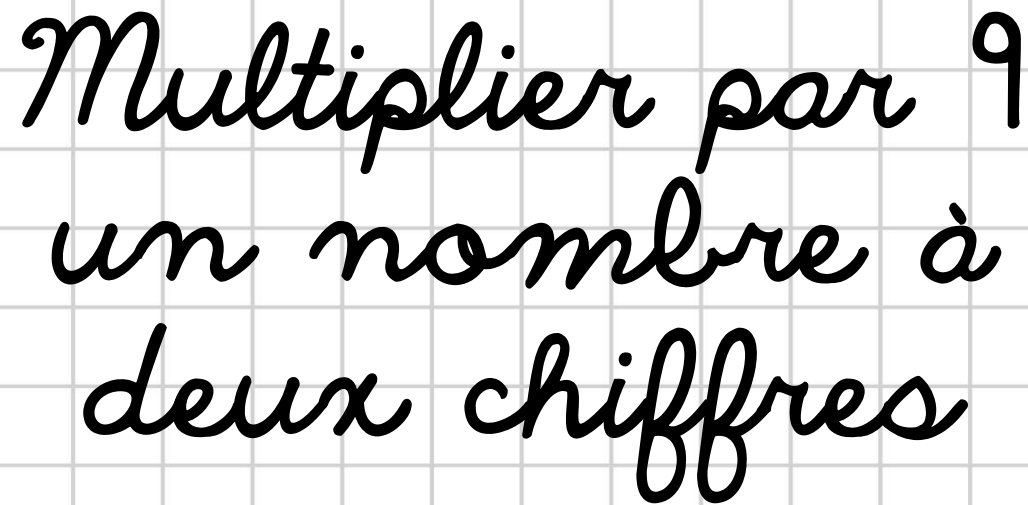 Multiplier par 9
un nombre à
deux chiffres